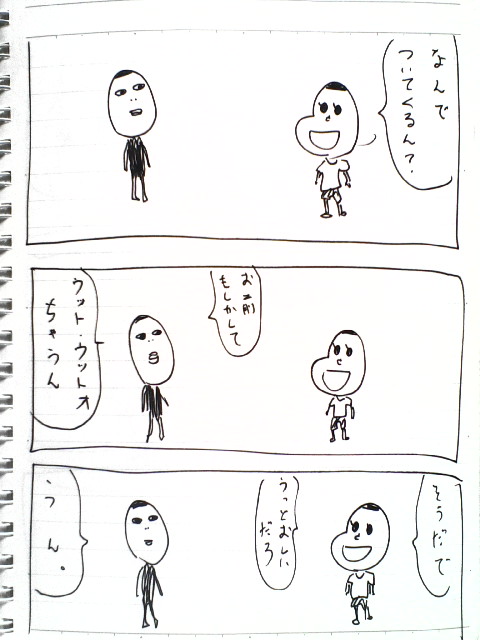 なんで
ついてくるん?
お前
もしかして
ウット・ウットオ
ちゃうん
そうだで
うっとおしい
だろ
うん。